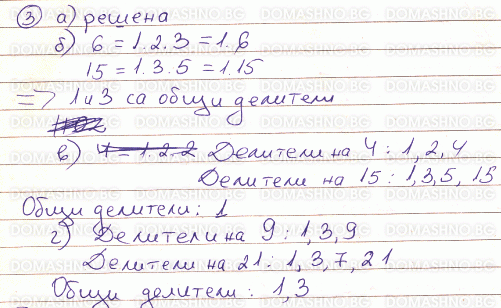 ③ а) решена
б) 6 = 1.2.3 = 1.6
15 = 1.3.5 = 1.15
=> 1 и 3 са общи делители
в) 4 = 1.2.2 Делители на 4 : 1, 2, 4
Делители на 15 : 1,3,5, 15
Общи делители : 1
г) Делители на 9 : 1, 3, 9
Делители на 21 : 1, 3, 7, 21
Общи делители : 1, 3